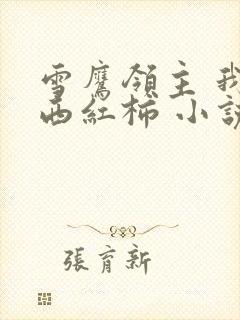 雪鷹領主 我
西紅柿 小說
張育新